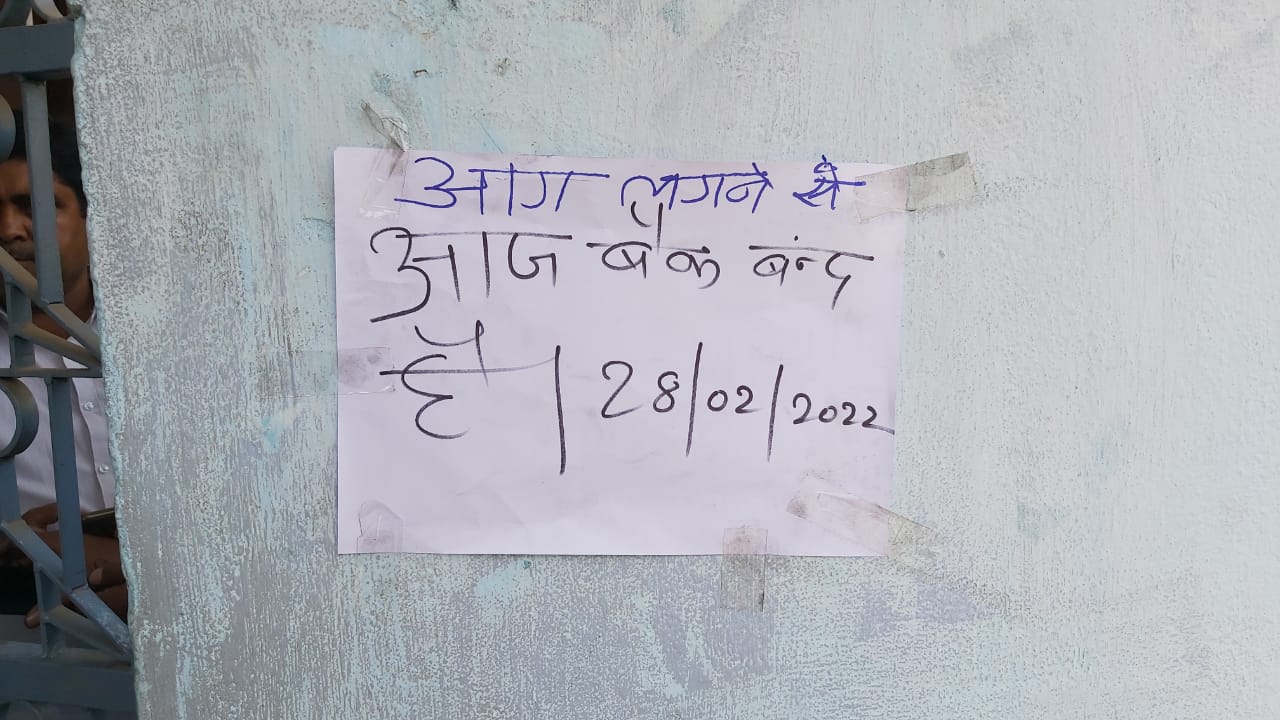 आग लगने से
आज बैंक बन्द
है | 28/02/2022